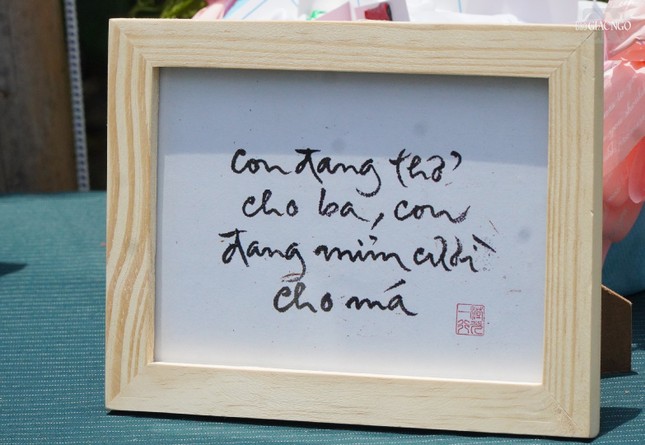 GIÁC NGỘ
con đang thở
cho ba, con
đang mỉm cười
cho má